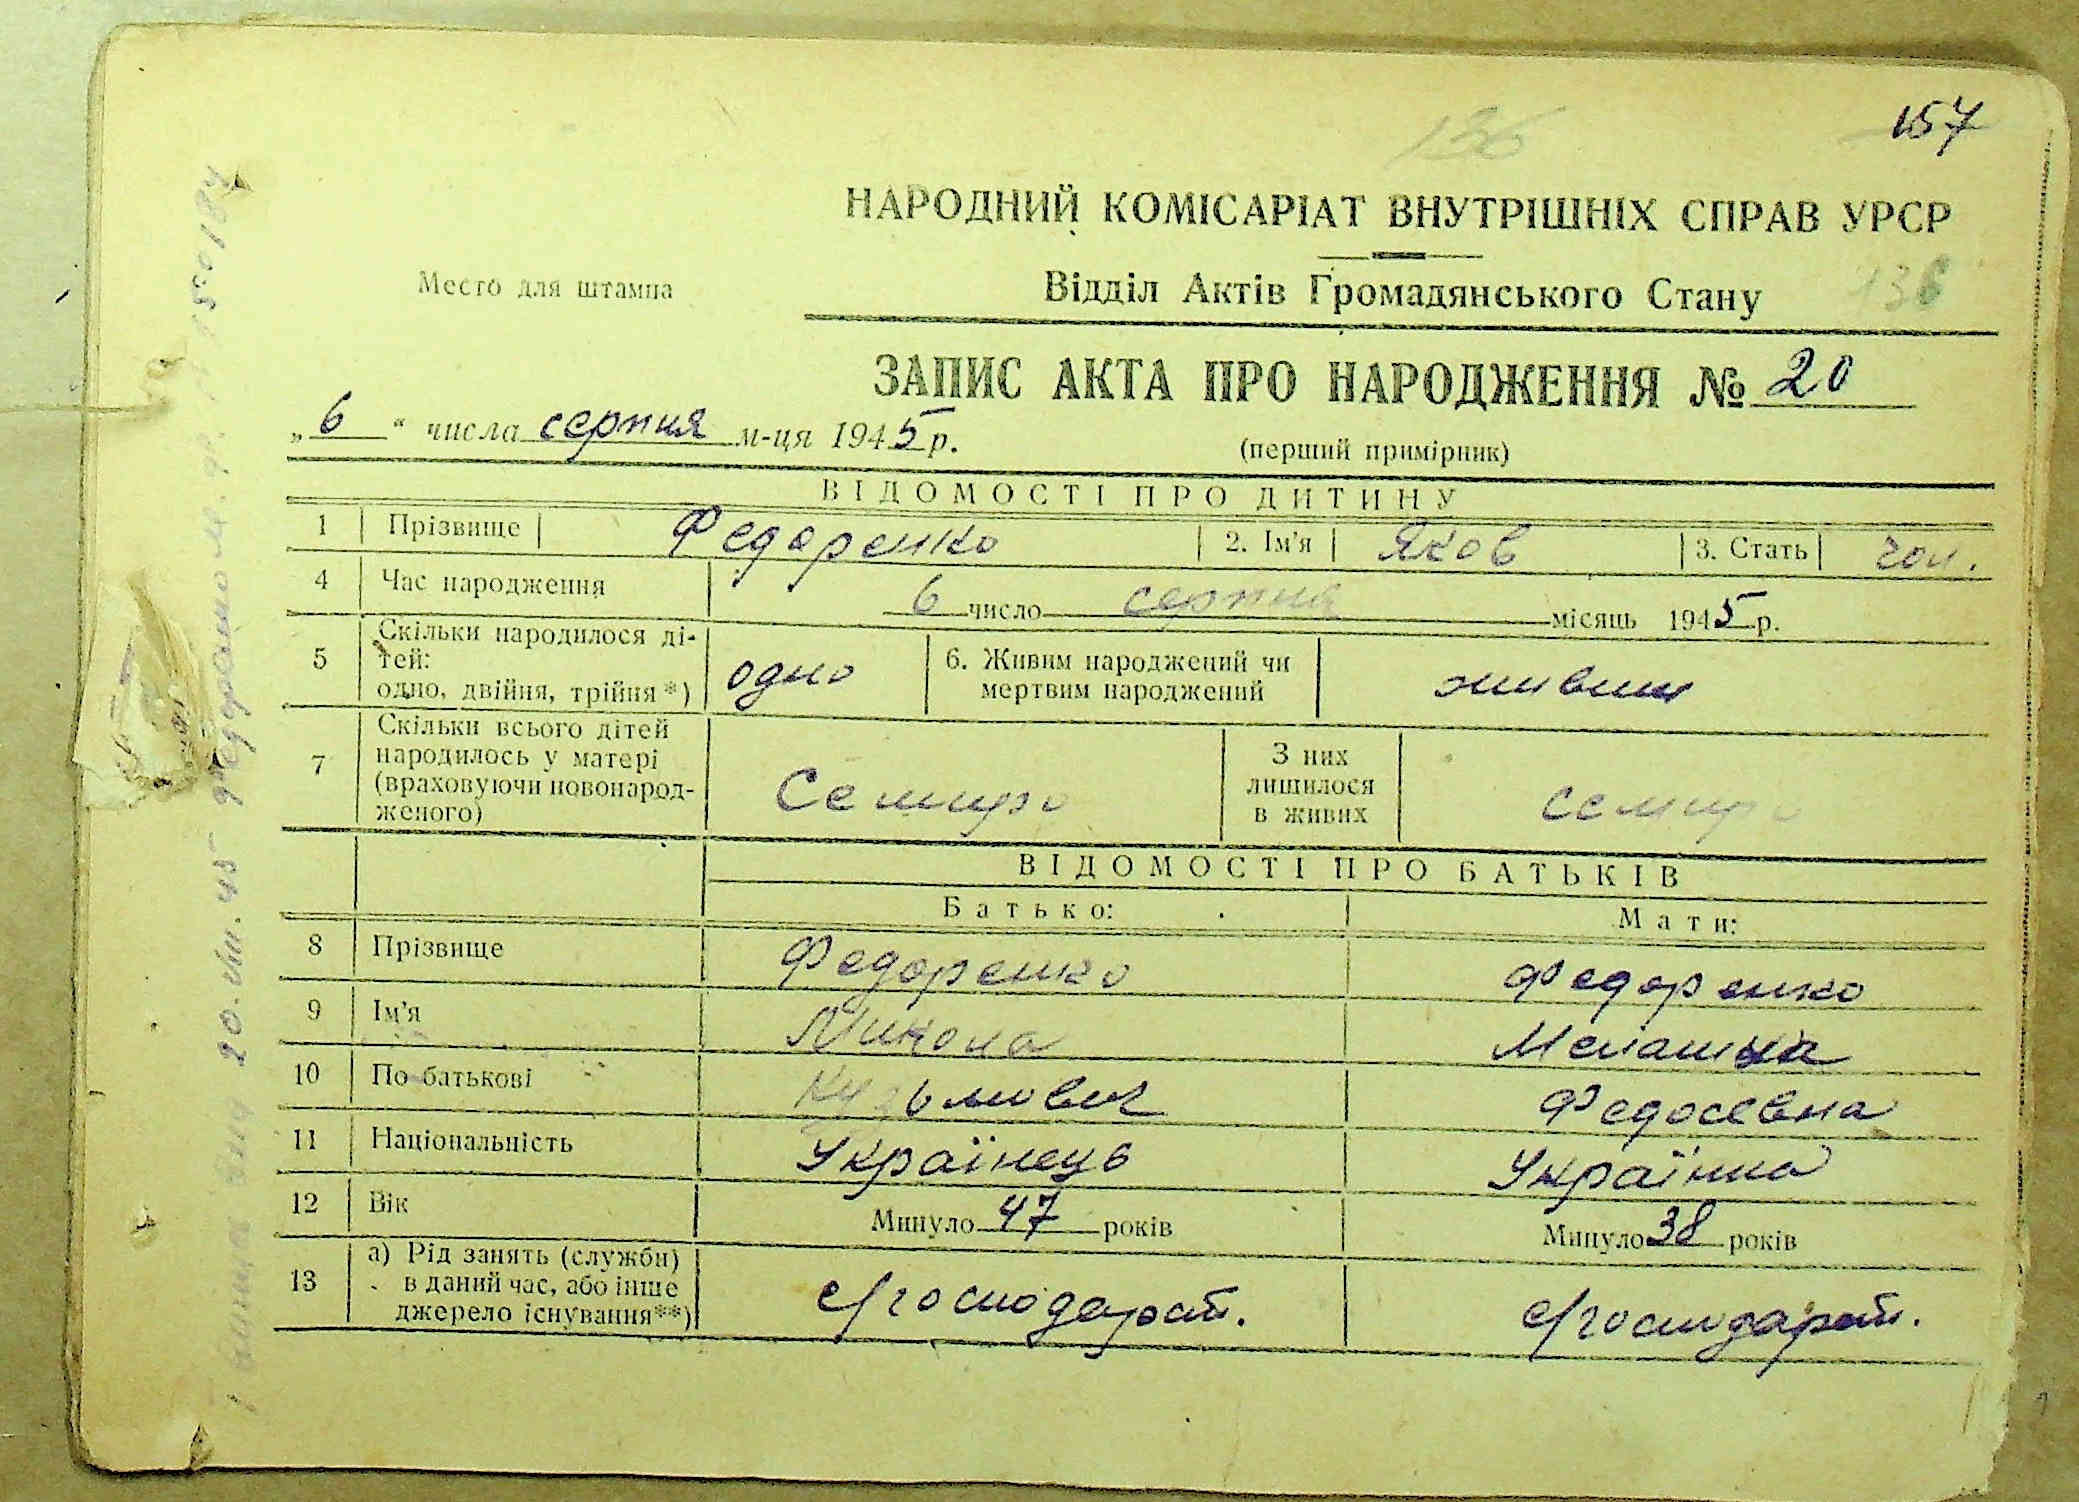 157
136
НАРОДНИЙ КОМІСАРІАТ ВНУТРІШНІХ СПРАВ УРСР
Место для штампа
Відділ Актів Громадянського Стану
136
ЗАПИС АКТА ПРО НАРОДЖЕННЯ № 20
„6“ числа серпня м-ця 1945 р.
(перший примірник)
ВІДОМОСТІ ПРО ДИТИНУ
1 Прізвище Федоренко 2. Ім'я Яков 3. Стать чол.
4 Час народження 6 число серпня місяць 1945 р.
5 Скільки народилося ді-
тей:
одно, двійня, трійня*) одно 6. Живим народжений чи
мертвим народжений живим
7 Скільки всього дітей
народилось у матері
(враховуючи новонарод-
женого) Семеро З них
лишилося
в живих семеро
ВІДОМОСТІ ПРО БАТЬКІВ
Батько: Мати:
8 Прізвище Федоренко Федоренко
9 Ім'я Микола Мелашка
10 По батькові Кузьмович Федосевна
11 Національність Українець Українка
12 Вік Минуло 47 років Минуло 38 років
13 а) Рід занять (служби)
в даний час, або інше
джерело існування**) с/господарст. с/господарст.